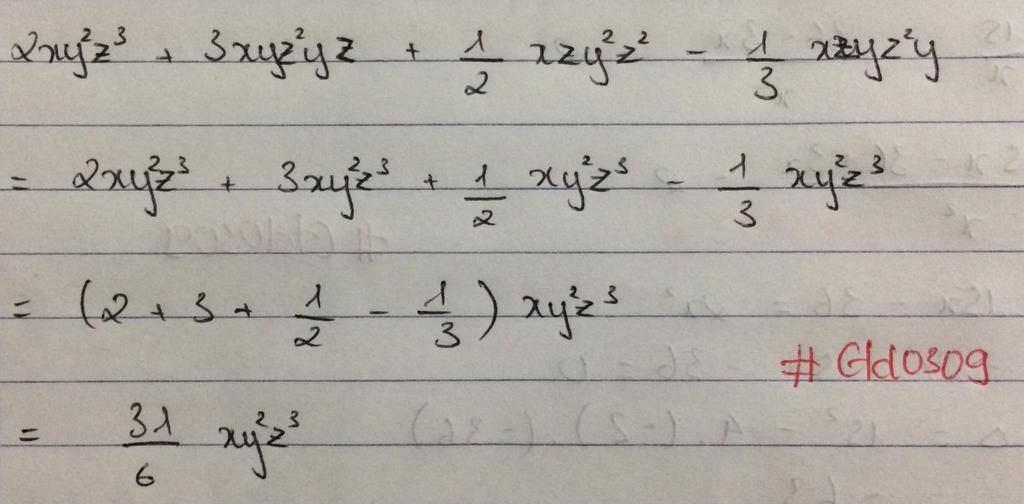 2xy²z³ + 3xyz²yz + 1/2 xzy²z² - 1/3 xzyz²y
= 2xy²z³ + 3xy²z³ + 1/2 xy²z³ - 1/3 xy²z³
= (2 + 3 + 1/2 - 1/3) xy²z³
#Gld0309
= 31/6 xy²z³